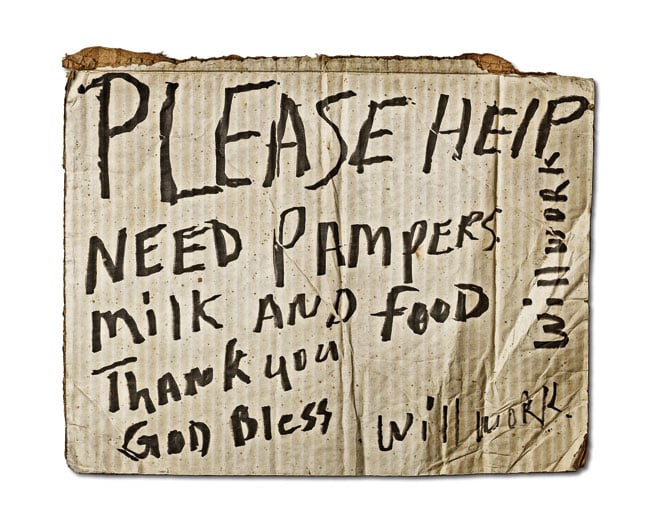 PLEASE HElP
NEED PAMPERS
milk AND fooD
Thank you
GOD Bless
will work.
Will work